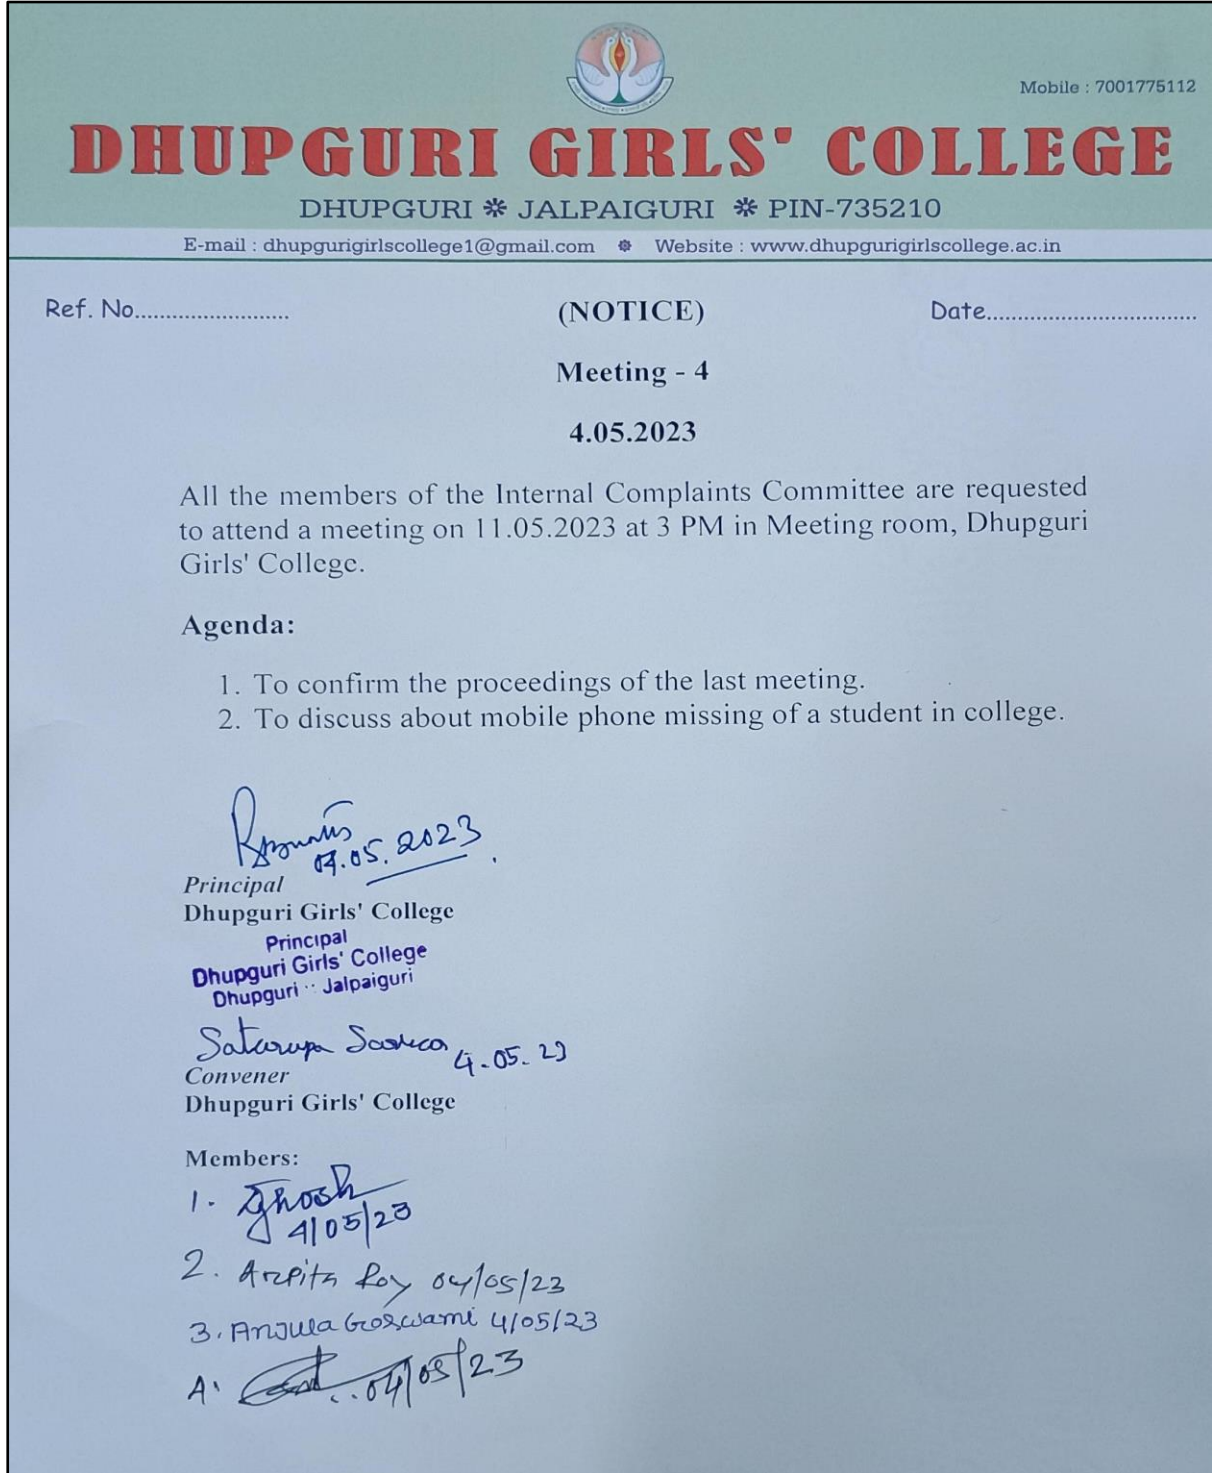 Mobile : 7001775112
DHUPGURI GIRLS' COLLEGE
DHUPGURI ✲ JALPAIGURI ✲ PIN-735210
E-mail : dhupgurigirlscollege1@gmail.com ✲ Website : www.dhupgurigirlscollege.ac.in
Ref. No......................... (NOTICE) Date..................................
Meeting - 4
4.05.2023
All the members of the Internal Complaints Committee are requested
to attend a meeting on 11.05.2023 at 3 PM in Meeting room, Dhupguri
Girls' College.
Agenda:
1. To confirm the proceedings of the last meeting.
2. To discuss about mobile phone missing of a student in college.
04.05.2023
Principal
Dhupguri Girls' College
Principal
Dhupguri Girls' College
Dhupguri :: Jalpaiguri
Satarupa 4.05.23
Convener
Dhupguri Girls' College
Members:
1. Ghosh
4/05/23
2. Arpita Roy 04/05/23
3. Anjula Goswami 4/05/23
04/05/23